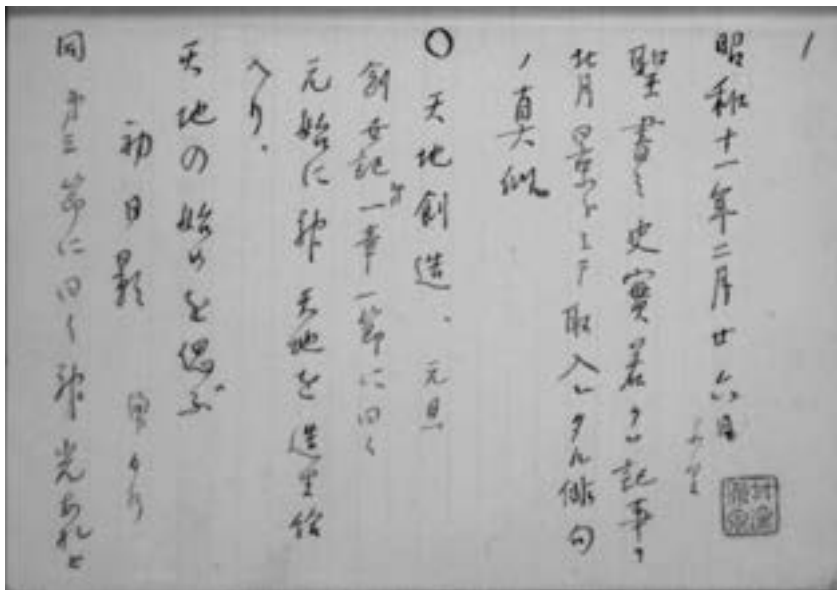 1
昭和十一年二月廿六日
聖書ノ史實若クハ記事ヲ
背景トシテ取入レタル俳句
ノ真似
○ 天地創造、元旦
創世記第一章一節に曰く
元始に神天地を造り給
へり、
天地の始めを偲ぶ
初日影
同第三節に曰く神光あれと